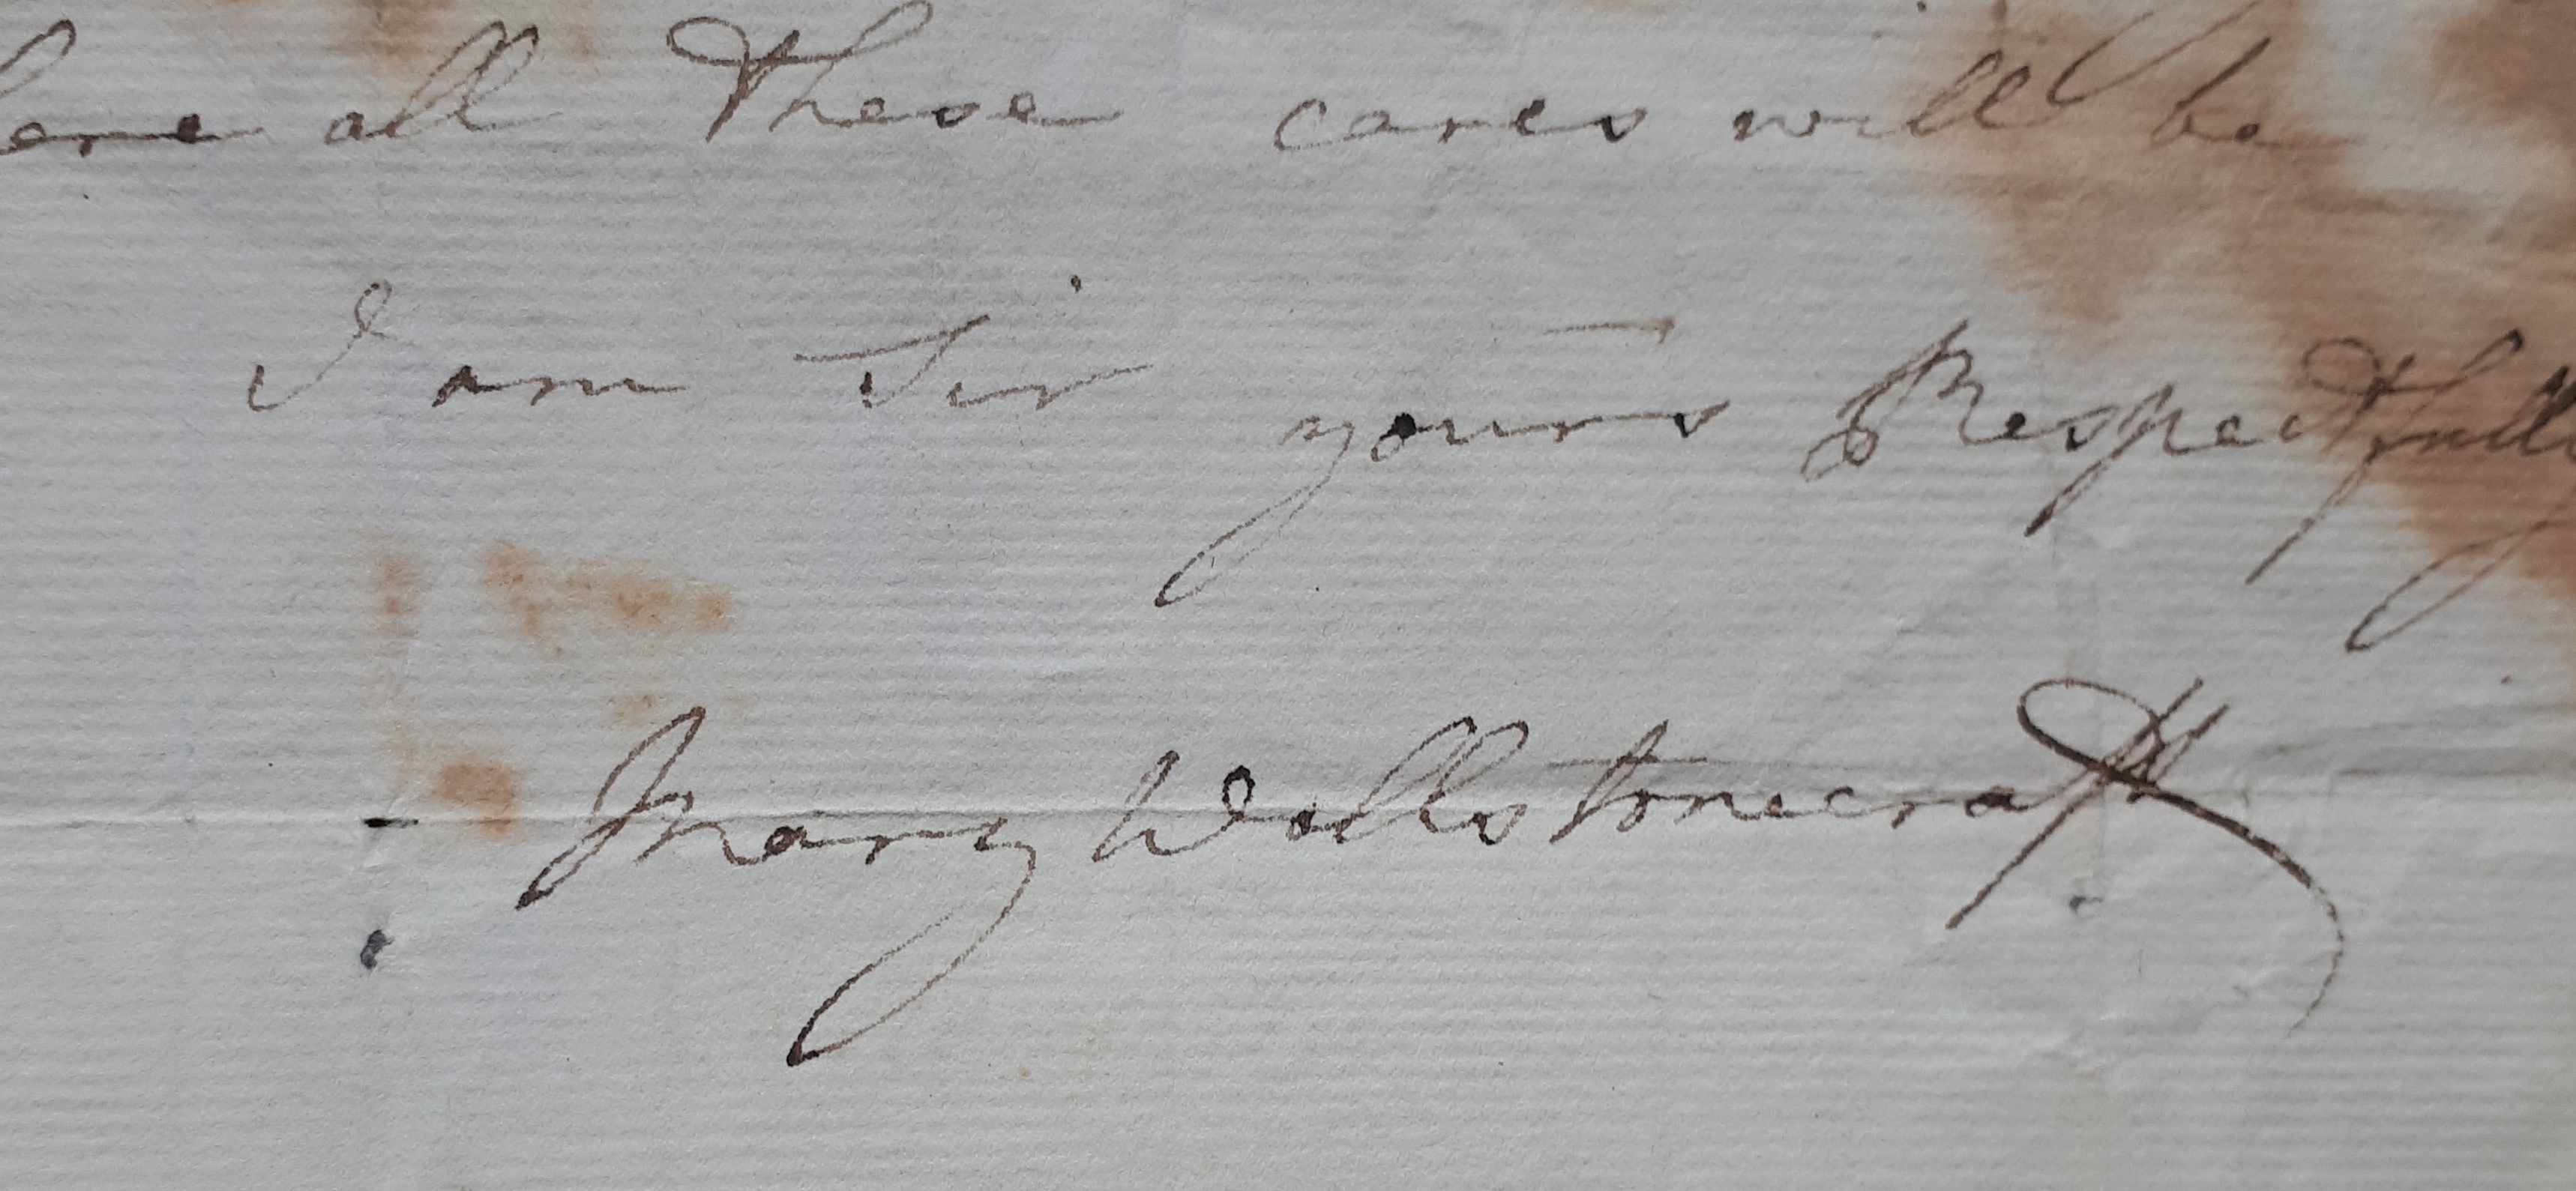 all these cares will be
I am Sir yours Respectfully
Mary Wollstonecraft